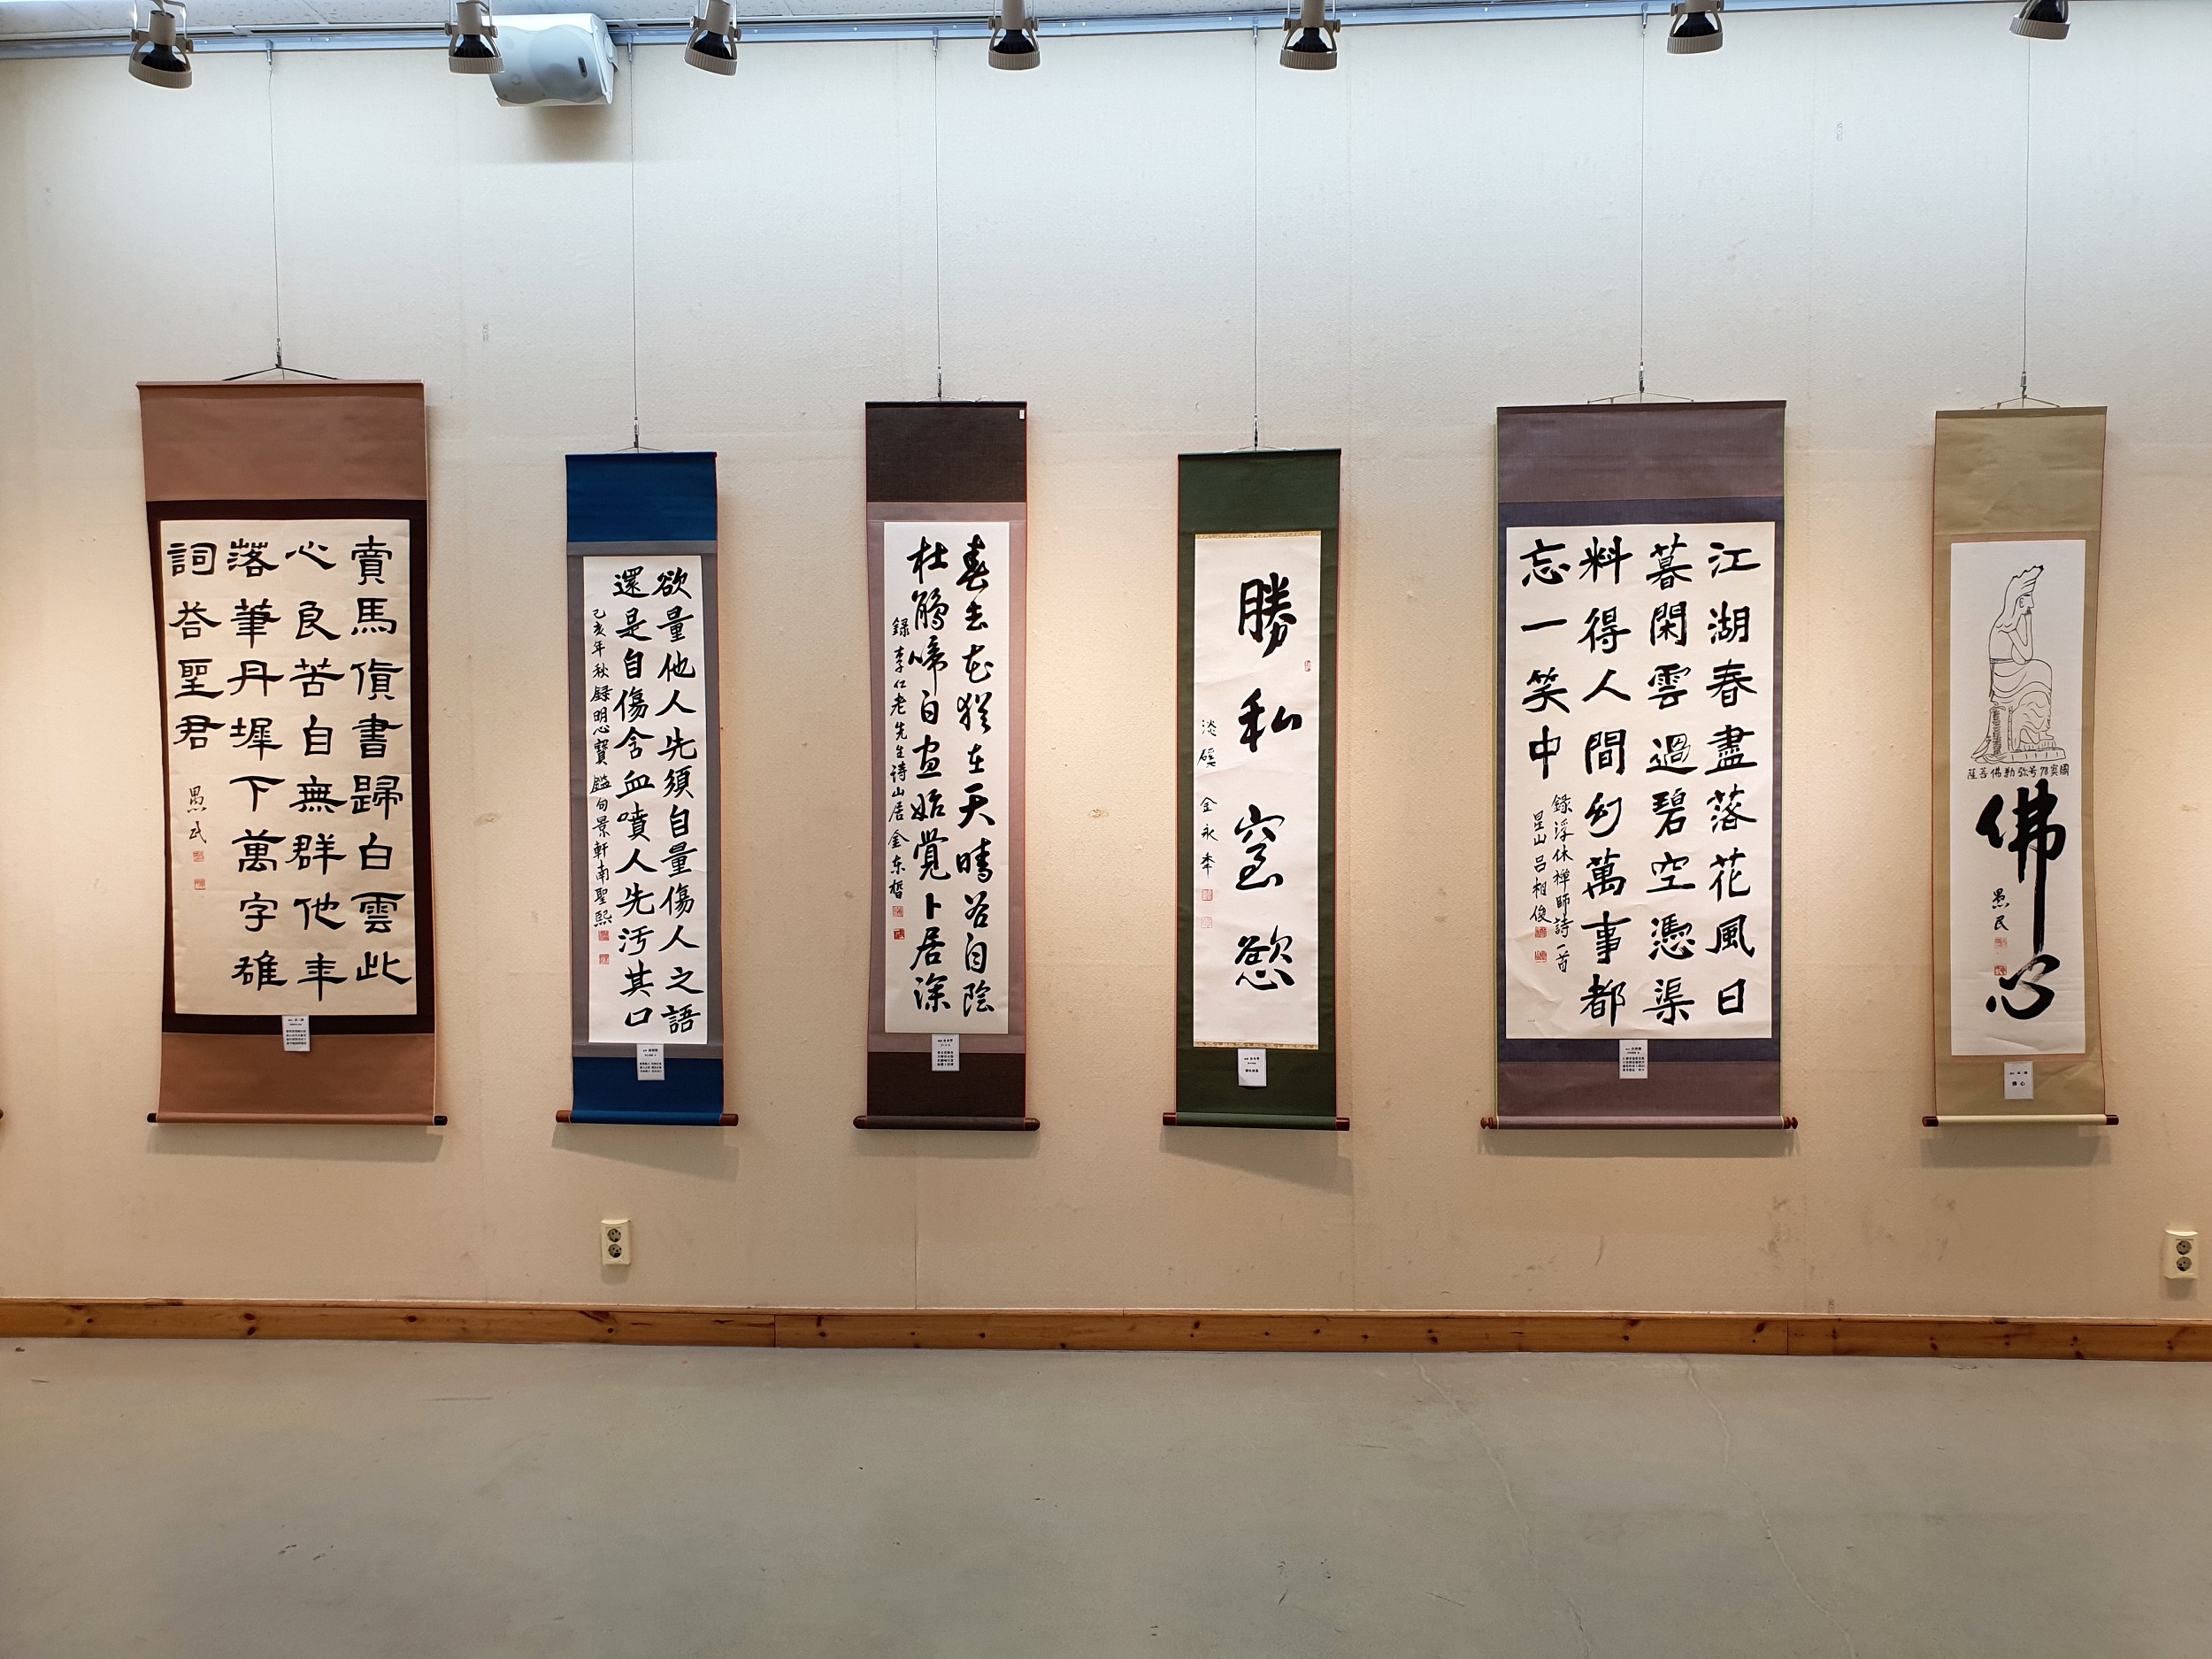 賣馬貨書歸白雲此
心良苦自無群他年
落筆丹墀下萬字雄
詞答聖君
愚民
欲量他人先須自量傷人之語
還是自傷含血噴人先汚其口
己亥年秋錄明心寶鑑句景軒南聖熙
春去花猶在天晴谷自陰
杜鵑啼白晝始覺卜居深
録李仁老先生诗山居金东哲
勝私窒慾
淡磎 金永奉
江湖春盡落花風日
暮閑雲過碧空憑渠
料得人間幻萬事都
忘一笑中
録浮休禅師詩一首
星山呂相俊
國宝78号弥勒佛菩薩
佛心
愚民